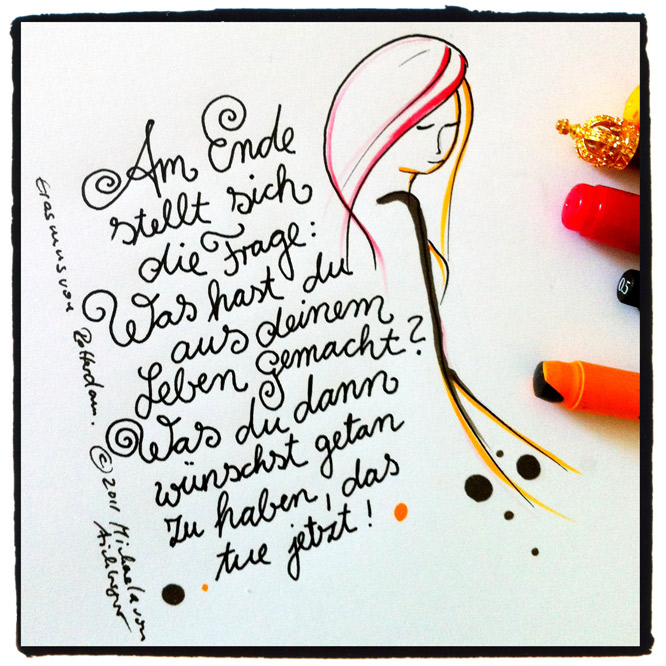 Am Ende
stellt sich
die Frage:
Was hast du
aus deinem
Leben gemacht?
Was du dann
wünschst getan
zu haben, das
tue jetzt!
Erasmus von Rotterdam. © 2011 Michaela von
Aichberger
05